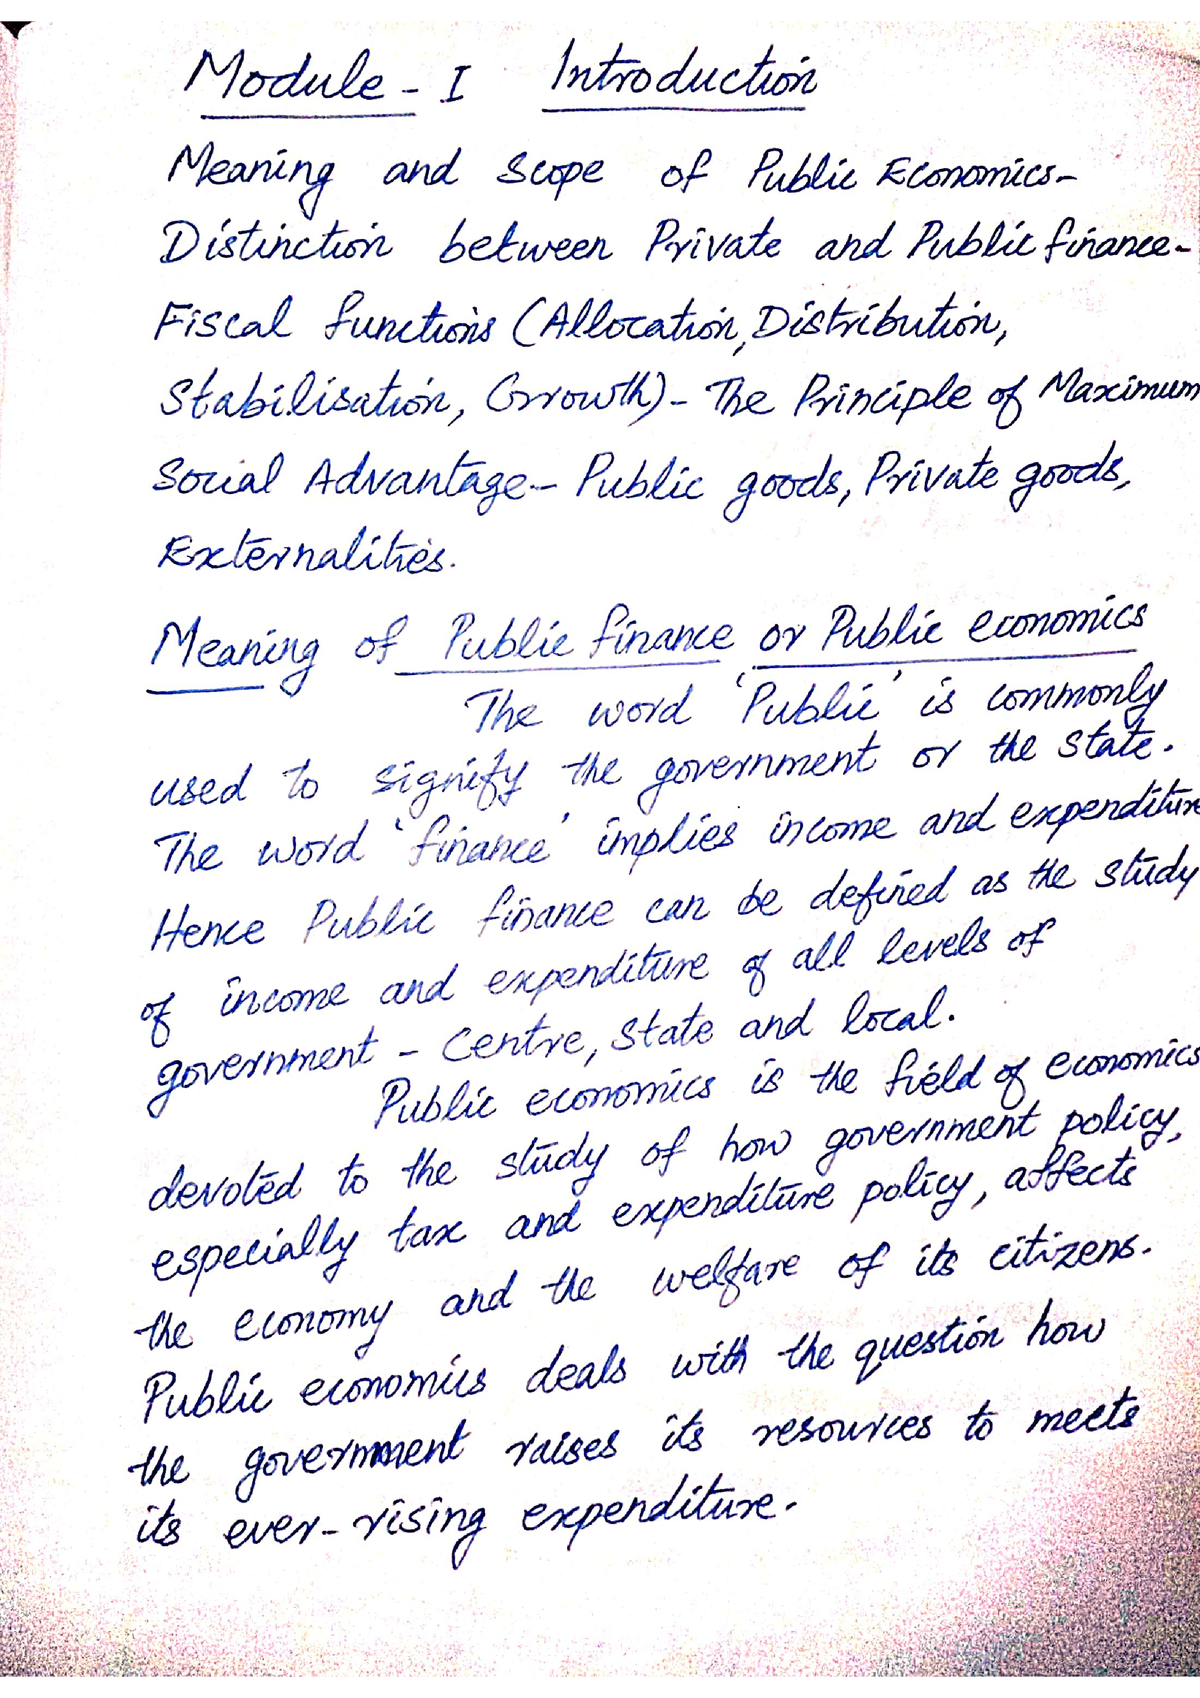 Module - I Introduction
Meaning and Scope of Public Economics-
Distinction between Private and Public finance-
Fiscal functions (Allocation, Distribution,
Stabilisation, Growth)- The Principle of Maximum
Social Advantage- Public goods, Private goods,
Externalities.
Meaning of Public finance or Public economics
The word 'Public' is commonly
used to signify the government or the state.
The word 'finance' implies income and expenditure
Hence Public finance can be defined as the study
of income and expenditure of all levels of
government - Centre, State and local.
Public economics is the field of economics
devoted to the study of how government policy,
especially tax and expenditure policy, affects
the economy and the welfare of its citizens.
Public economics deals with the question how
the government raises its resources to meets
its ever-rising expenditure.